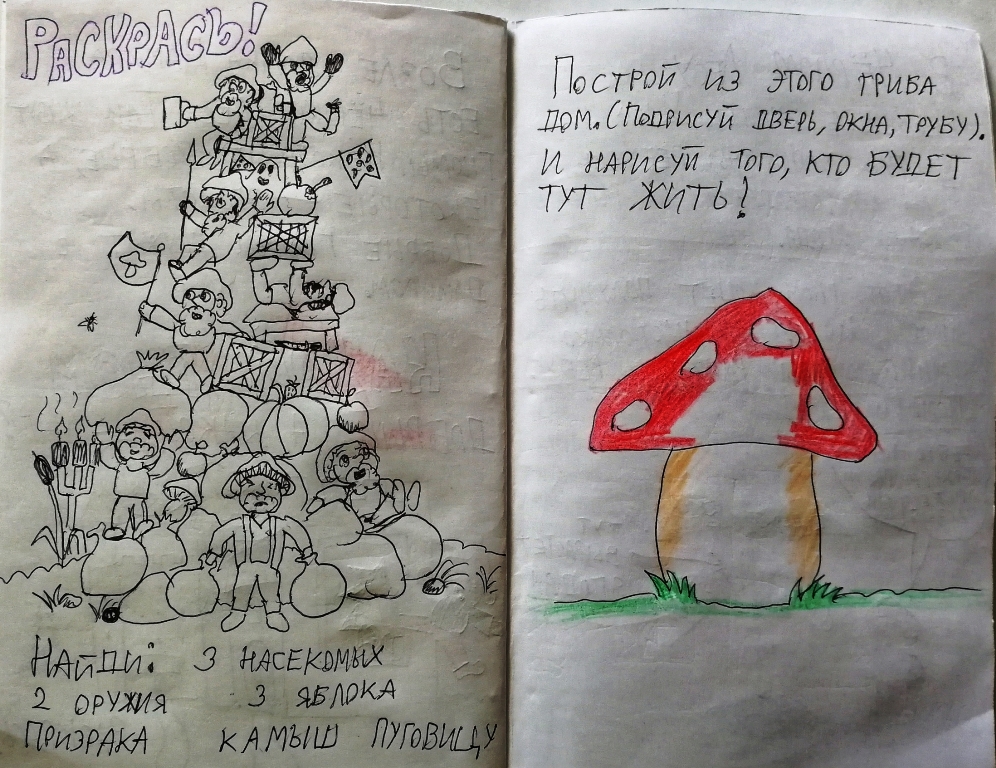 РАСКРАСЬ!
НАЙДИ: 3 НАСЕКОМЫХ
2 ОРУЖИЯ 3 ЯБЛОКА
ПРИЗРАКА КАМЫШ ПУГОВИЦУ
ПОСТРОЙ ИЗ ЭТОГО ГРИБА
ДОМ. (ПОДРИСУЙ ДВЕРЬ, ОКНА, ТРУБУ).
И НАРИСУЙ ТОГО, КТО БУДЕТ
ТУТ ЖИТЬ!